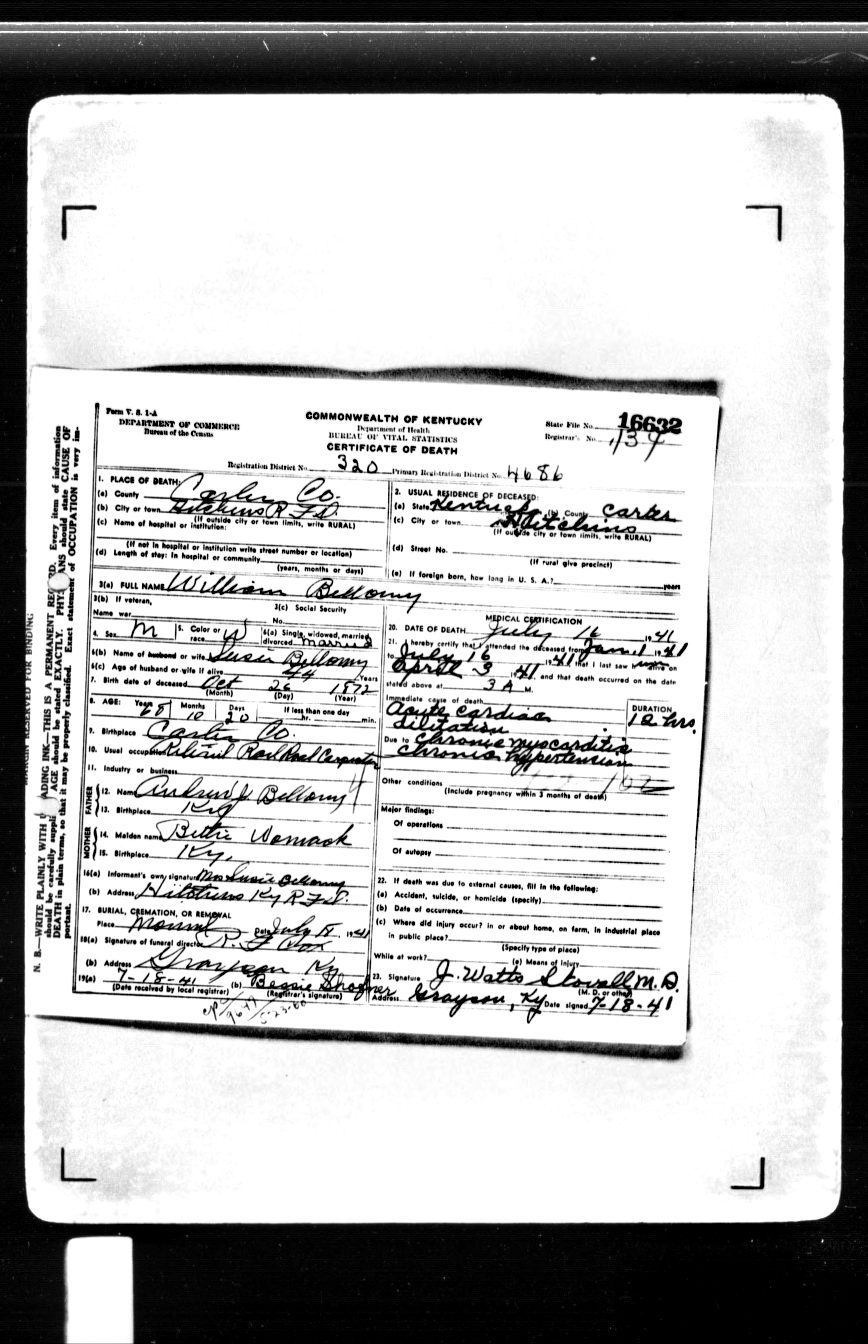 Form V. S. 1-A
DEPARTMENT OF COMMERCE
Bureau of the Census
COMMONWEALTH OF KENTUCKY
Department of Health
BUREAU OF VITAL STATISTICS
CERTIFICATE OF DEATH
State File No. 16632
Registrar's No. 134
Registration District No. 320 Primary Registration District No. 4686
1. PLACE OF DEATH:
(a) County Carter Co.
(b) City or town Hitchins R F D.
(If outside city or town limits, write RURAL)
(c) Name of hospital or institution:
(If not in hospital or institution write street number or location)
(d) Length of stay: in hospital or community
(years, months or days)
2. USUAL RESIDENCE OF DECEASED:
(a) State Kentucky (b) County Carter
(c) City or town Hitchins
(If outside city or town limits, write RURAL)
(d) Street No.
(If rural give precinct)
(e) If foreign born, how long in U. S. A.? years
3(a) FULL NAME William Bellomy
3(b) If veteran,
Name war
3(c) Social Security
No.
4. Sex M 5. Color or race W 6(a) Single, widowed, married divorced Married
6(b) Name of husband or wife Susie Bellomy
6(c) Age of husband or wife if alive 44 Years
7. Birth date of deceased Oct 26 1872
(Month) (Day) (Year)
8. AGE: Years 68 Months 10 Days 20 If less than one day
hr. min.
9. Birthplace Carter Co.
10. Usual occupation Retired Rail Road Carpenter
11. Industry or business
FATHER
12. Name Andrew J Bellomy
13. Birthplace Ky
MOTHER
14. Maiden name Bettie Womack
15. Birthplace Ky.
16(a) Informant's own signature Mrs Susie Bellomy
(b) Address Hitchins Ky R F D.
17. BURIAL, CREMATION, OR REMOVAL
Place Date July 1941
18(a) Signature of funeral director R. F
(b) Address Grayson Ky
19(a) 7-18-41 (b) Bessie Shaffner
(Date received by local registrar) (Registrar's signature)
MEDICAL CERTIFICATION
20. DATE OF DEATH July 16 1941
21. I hereby certify that I attended the deceased from Jan 1 1941
to July 16 1941 that I last saw him alive on
April 3 1941, and that death occurred on the date
stated above at 3 A M.
Immediate cause of death
DURATION
Acute cardiac dilitation 12 hrs.
Due to Chronic myocarditis
Chronic hypertension
Other conditions
(Include pregnancy within 3 months of death)
Major findings:
Of operations
Of autopsy
22. If death was due to external causes, fill in the following:
(a) Accident, suicide, or homicide (specify)
(b) Date of occurrence
(c) Where did injury occur? in or about home, on farm, in industrial place
in public place?
(Specify type of place)
While at work? (e) Means of Injury
23. Signature J. Watts Stovall M. D.
(M. D. or other)
Address Grayson, Ky Date signed 7-18-41
MARGIN RESERVED FOR BINDING